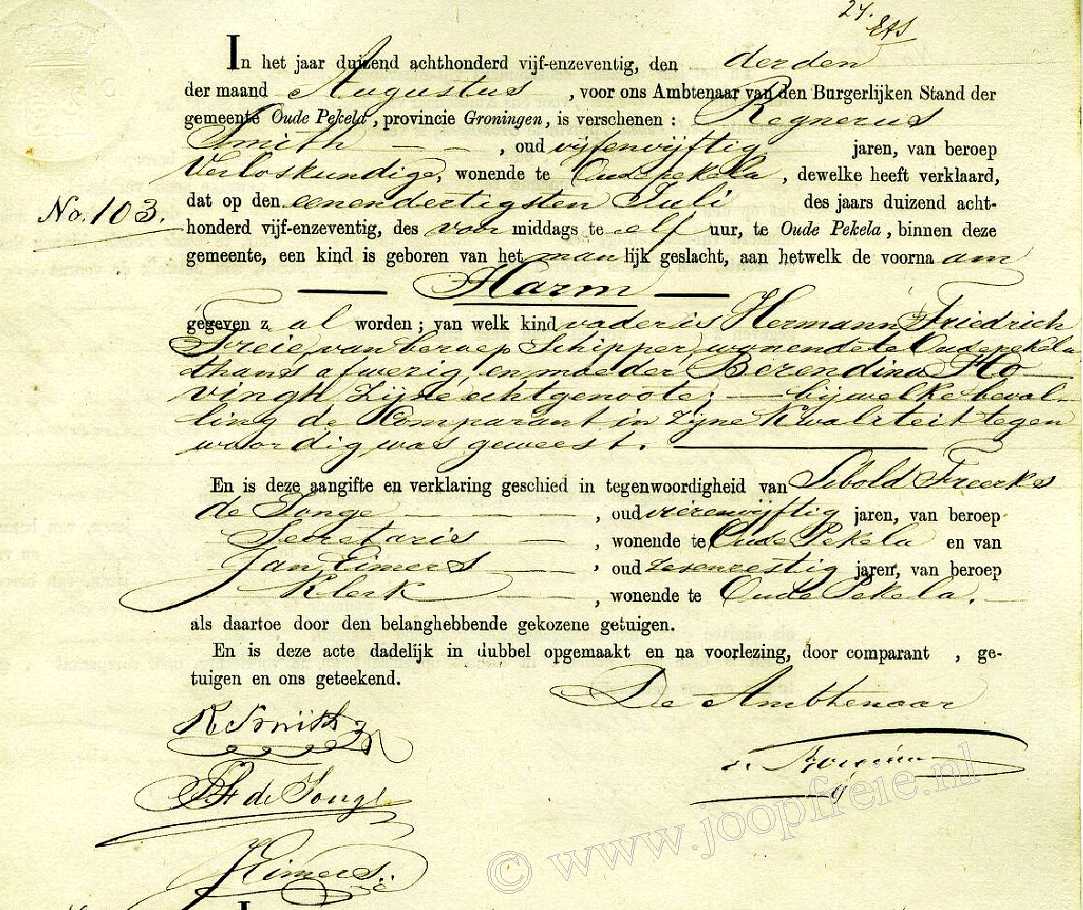 24.
In het jaar duizend achthonderd vijf-enzeventig, den derden
der maand Augustus, voor ons Ambtenaar van den Burgerlijken Stand der
gemeente Oude Pekela, provincie Groningen, is verschenen: Regnerus
Smith — —, oud vijfenvijftig jaren, van beroep
Verloskundige, wonende te Oude Pekela, dewelke heeft verklaard,
No. 103.
dat op den eenendertigsten Juli des jaars duizend acht-
honderd vijf-enzeventig, des voor middags te elf uur, te Oude Pekela, binnen deze
gemeente, een kind is geboren van het manlijk geslacht, aan hetwelk de voorna am
— Harm —
gegeven z al worden; van welk kind vader is Hermann Friedrich
Freie, van beroep Schipper, wonende te Oude pekela
thans afwezig, en moeder Berendina Ho-
vingh zijne echtgenoote; — bij welke beval-
ling de Komparant in zijne kwaliteit tegen
woordig was geweest. —
En is deze aangifte en verklaring geschied in tegenwoordigheid van Sibold Freerkes
de Jonge — — — —, oud vierenvijftig jaren, van beroep
Secretaris —, wonende te Oude Pekela en van
Jan Eimers — —, oud zesenzestig jaren, van beroep
Klerk — —, wonende te Oude Pekela. —
als daartoe door den belanghebbende gekozene getuigen.
En is deze acte dadelijk in dubbel opgemaakt en na voorlezing, door comparant, ge-
tuigen en ons geteekend.
De Ambtenaar
R Smith
SF de Jonge
JEimers
© www.joopfreie.nl